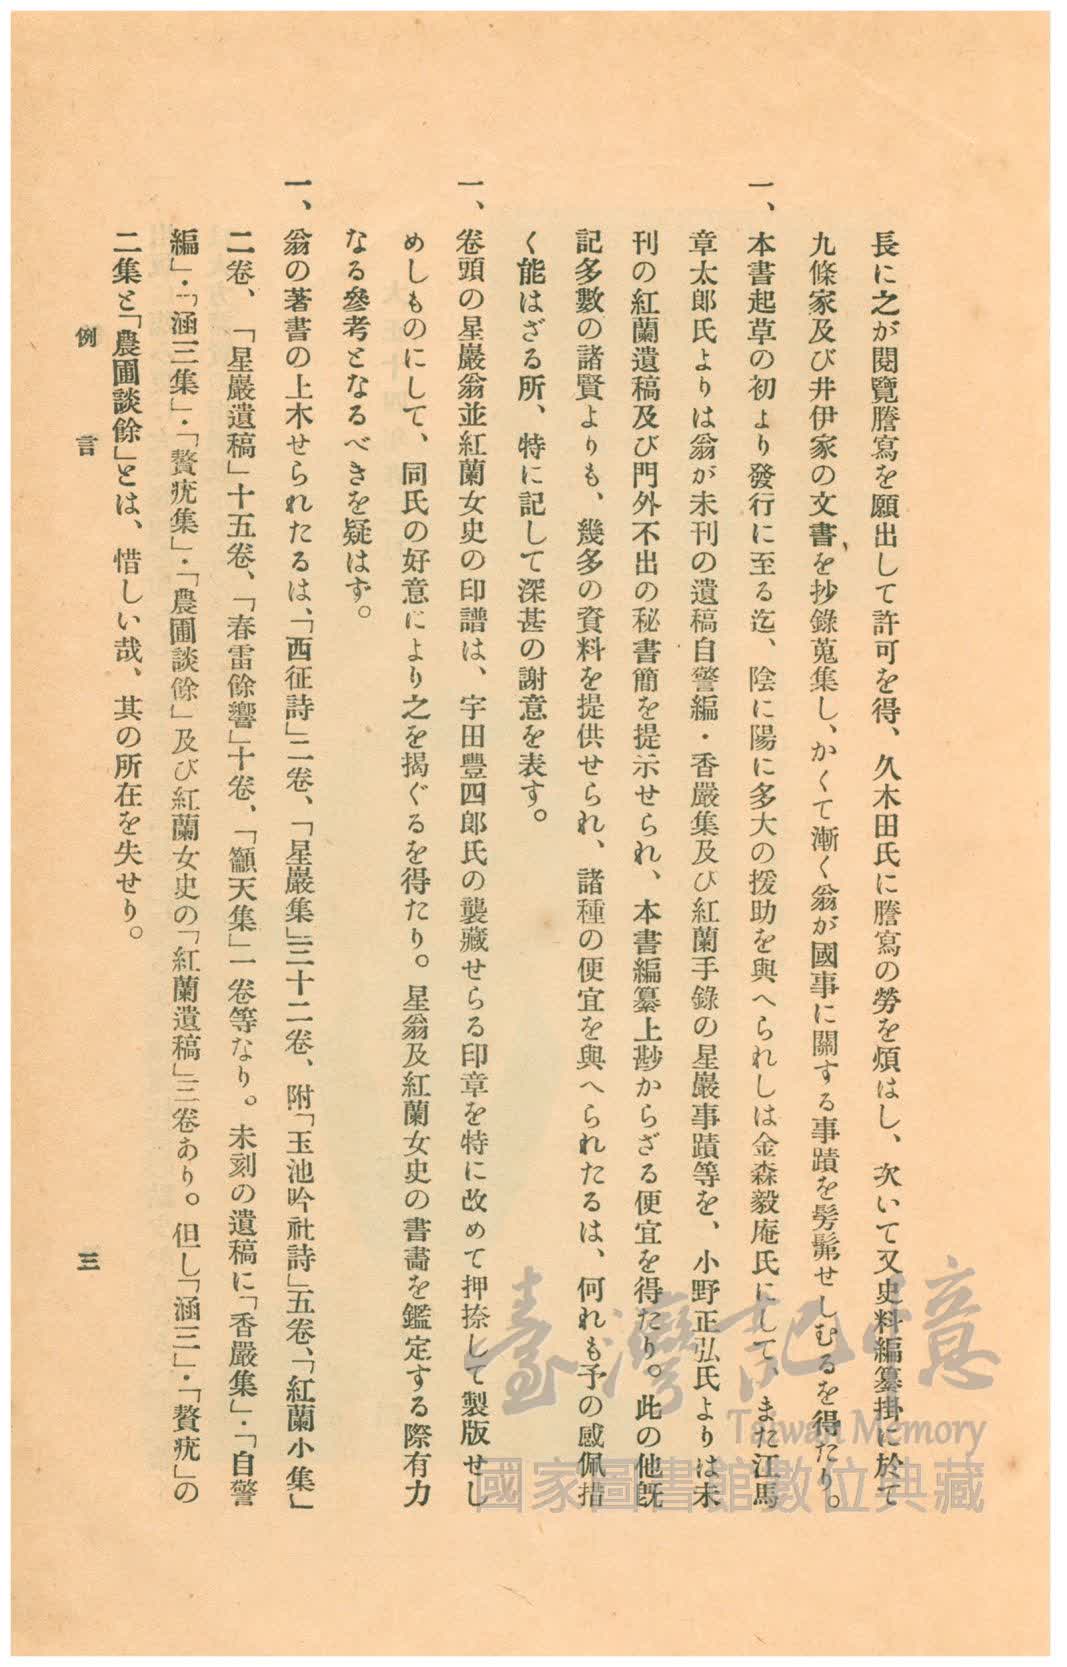 長に之が閱覽謄寫を願出して許可を得、久木田氏に謄寫の勞を煩はし、次いて又史料編纂掛に於て
九條家及び井伊家の文書を抄錄蒐集し、かくて漸く翁が國事に關する事蹟を髣髴せしむるを得たり。
一、本書起草の初より發行に至る迄、陰に陽に多大の援助を與へられしは金森毅庵氏にして、また江馬
章太郎氏よりは翁が未刊の遺稿自警編・香嚴集及び紅蘭手錄の星巖事蹟等を、小野正弘氏よりは未
刊の紅蘭遺稿及び門外不出の秘書簡を提示せられ、本書編纂上尠からざる便宜を得たり。此の他旣
記多數の諸賢よりも、幾多の資料を提供せられ、諸種の便宜を與へられたるは、何れも予の感佩措
く能はざる所、特に記して深甚の謝意を表す。
一、卷頭の星巖翁並紅蘭女史の印譜は、宇田豐四郎氏の襲藏せらる印章を特に改めて押捺して製版せし
めしものにして、同氏の好意により之を揭ぐるを得たり。星翁及紅蘭女史の書畵を鑑定する際有力
なる參考となるべきを疑はず。
一、翁の著書の上木せられたるは、「西征詩」二卷、「星巖集」三十二卷、附「玉池吟社詩」五卷、「紅蘭小集」
二卷、「星巖遺稿」十五卷、「春雷餘響」十卷、「籲天集」一卷等なり。未刻の遺稿に「香嚴集」・「自警
編」・「涵三集」・「贅疣集」・「農圃談餘」及び紅蘭女史の「紅蘭遺稿」三卷あり。但し「涵三」・「贅疣」の
二集と「農圃談餘」とは、惜しい哉、其の所在を失せり。
例言
三
臺灣記憶
Taiwan Memory
國家圖書館數位典藏